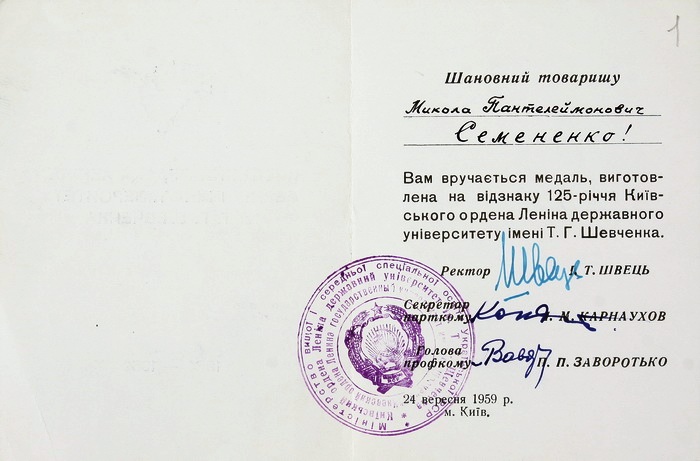 1
Шановний товаришу
Микола Пантелеймонович
Семененко!
Вам вручається медаль, виготов-
лена на відзнаку 125-річчя Київ-
ського ордена Леніна державного
університету імені Т. Г. Шевченка.
Ректор Швець І. Т. ШВЕЦЬ
Секретар
парткому КАРНАУХОВ
Голова
профкому П. П. ЗАВОРОТЬКО
24 вересня 1959 р.
м. Київ.
Міністерство вищої і середньої спеціальної освіти Української РСР
ордена Леніна державний університет
ордена Ленина государственный